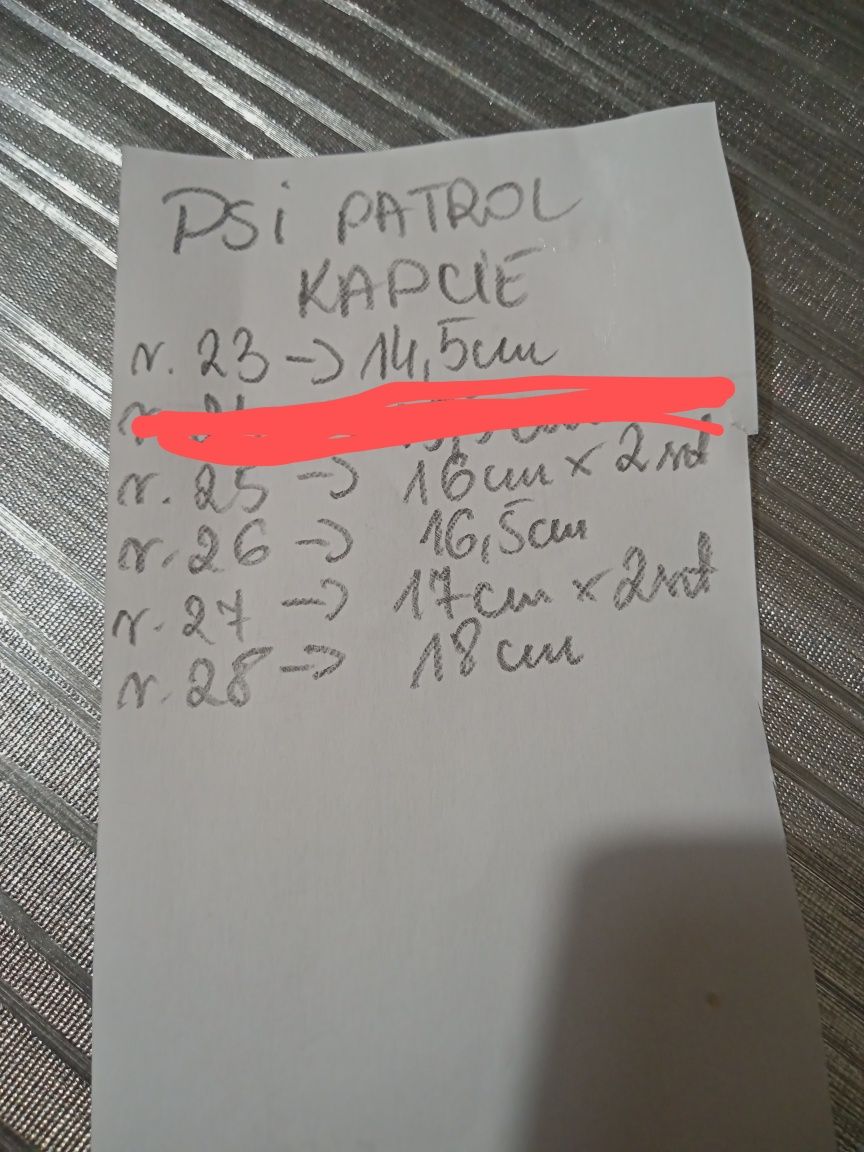 PSi PATROL
KAPCIE
r. 23 -> 14,5cm
r. 25 -> 16cm x 2szt
r. 26 -> 16,5cm
r. 27 -> 17cm x 2szt
r. 28 -> 18cm